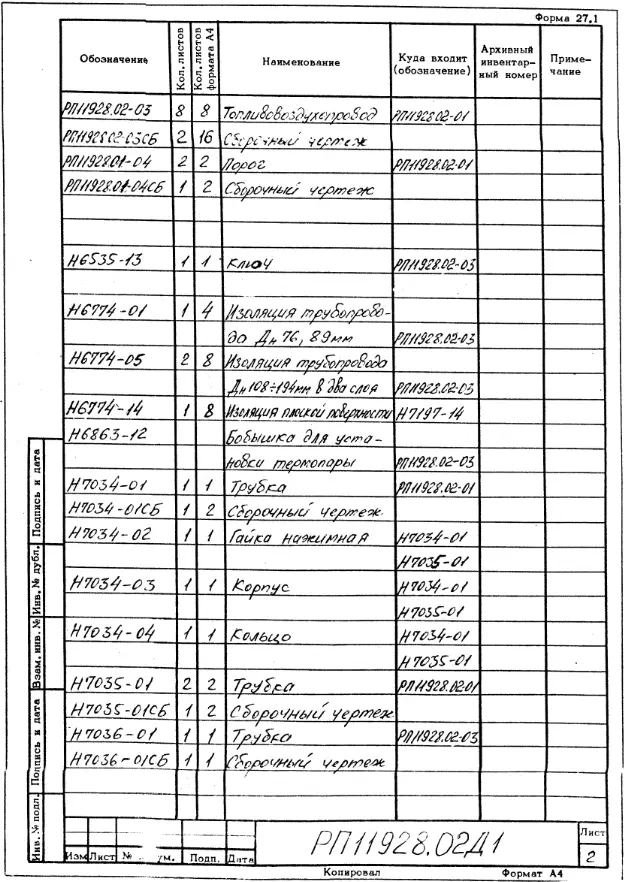 Форма 27.1
Обозначение Кол. листов Кол. листов формата А4 Наименование Куда входит (обозначение) Архивный инвентар-ный номер Приме-чание
РП11928.02-03 8 8 Топливовоздухопровод РП11928.02-01
РП11928.02-03СБ 2 16 Сборочный чертеж
РП11928.01-04 2 2 Порог РП11928.02-01
РП11928.01-04СБ 1 2 Сборочный чертеж
Н6535-13 1 1 Ключ РП11928.02-03
Н6774-01 1 4 Изоляция трубопрово-
да Дн 76, 89мм РП11928.02-03
Н6774-05 2 8 Изоляция трубопровода
Дн 108÷194мм в два слоя РП11928.02-03
Н6774-14 1 8 Изоляция плоской поверхности Н7197-14
Н6863-12 Бобышка для уста-
новки термопары РП11928.02-03
Н7034-01 1 1 Трубка РП11928.02-01
Н7034-01СБ 1 2 Сборочный чертеж
Н7034-02 1 1 Гайка нажимная Н7034-01
Н7035-01
Н7034-03 1 1 Корпус Н7034-01
Н7035-01
Н7034-04 1 1 Кольцо Н7034-01
Н7035-01
Н7035-01 2 2 Трубка РП11928.02-01
Н7035-01СБ 1 2 Сборочный чертеж
Н7036-01 1 1 Трубка РП11928.02-03
Н7036-01СБ 1 1 Сборочный чертеж
Подпись и дата
Инв. № дубл.
Взам. инв. №
Подпись и дата
Инв. № подл.
Изм Лист № ум. Подп. Дата
РП11928.02Д1
Лист
2
Копировал Формат А4